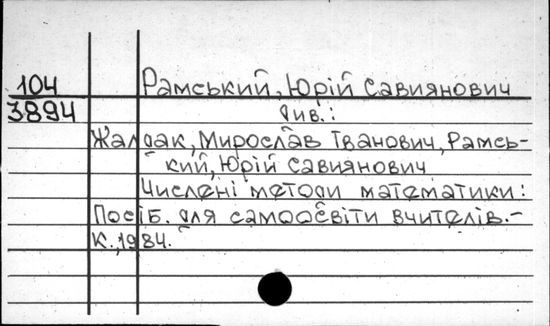 104 Рамський, Юрій Савиянович
3894 Див.:
Жалдак, Мирослав Іванович, Рамсь-
кий, Юрій Савиянович
Числені методи математики:
Посіб. для самоосвіти вчителів.-
К., 1984.